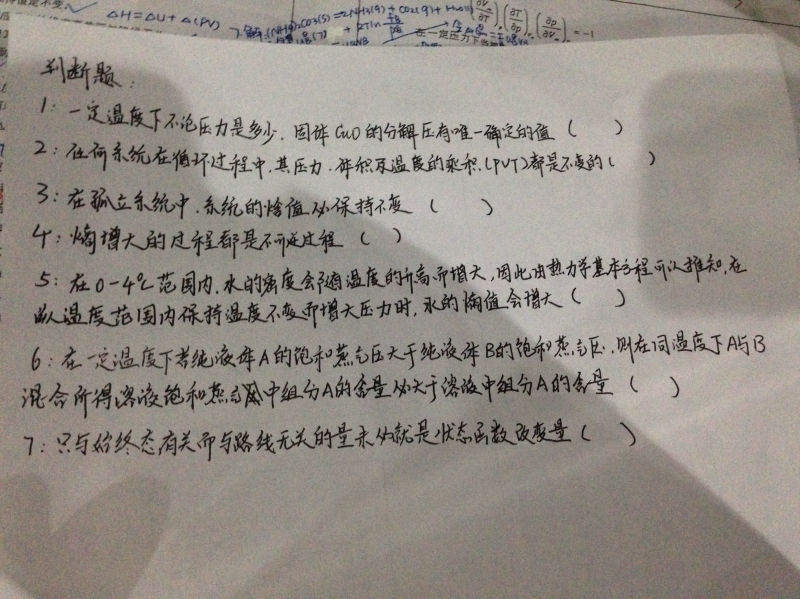 △H=△U+△(PV)
判断题:
1:一定温度下不论压力是多少,固体CuO的分解压有唯一确定的值( )
2:任何系统在循环过程中,其压力.体积及温度的乘积(PVT)都是不变的( )
3:在孤立系统中.系统的焓值必保持不变( )
4:熵增大的过程都是不可逆过程( )
5:在0-4℃范围内.水的密度会随温度的升高而增大,因此由热力学基本方程可以推知,在
此温度范围内保持温度不变而增大压力时,水的熵值会增大( )
6:在一定温度下若纯液体A的饱和蒸气压大于纯液体B的饱和蒸气压.则在同温度下A与B
混合所得溶液饱和蒸气中组分A的含量必大于溶液中组分A的含量( )
7:只与始终态有关而与路线无关的量未必就是状态函数改变量( )